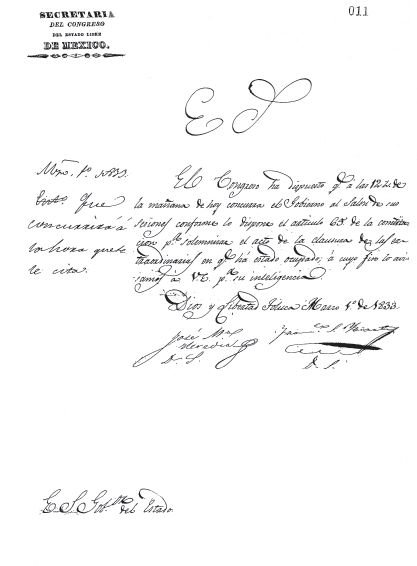 SECRETARIA
DEL CONGRESO
DEL ESTADO LIBRE
DE MEXICO.
011
E S
Mzo. 1º. 1833.
Que
concurrirá á
la hora que se
le cita.
El Congreso ha dispuesto q. á las 12 de
la mañana de hoy concurra el Gobierno al Salon de sus
sesiones conforme lo dispone el articulo 65 de la constitu
cion pª. solemnizar el acto de la clausura de las es-
traordinarias en q. há estado ocupado; á cuyo fin lo avi
samos á V.E. pª. su inteligencia.
Dios y Libertad Toluca Marzo 1º. de 1833.
José Mª
Heredia
D. S.
D. S.
E. S. Gobor. del Estado